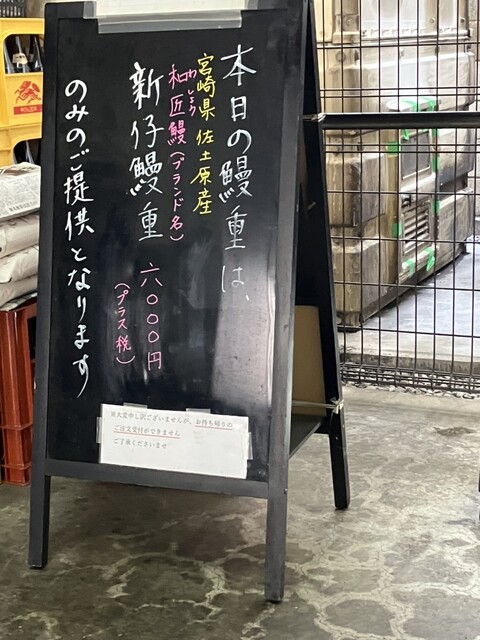 本日の鰻重は、
宮崎県 佐土原産
和匠鰻(ブランド名)
わしょう
新仔鰻重 六〇〇〇円
(プラス税)
のみのご提供となります
※大変申し訳ございませんが、お持ち帰りの
ご注文受付ができません
ご了承くださいませ